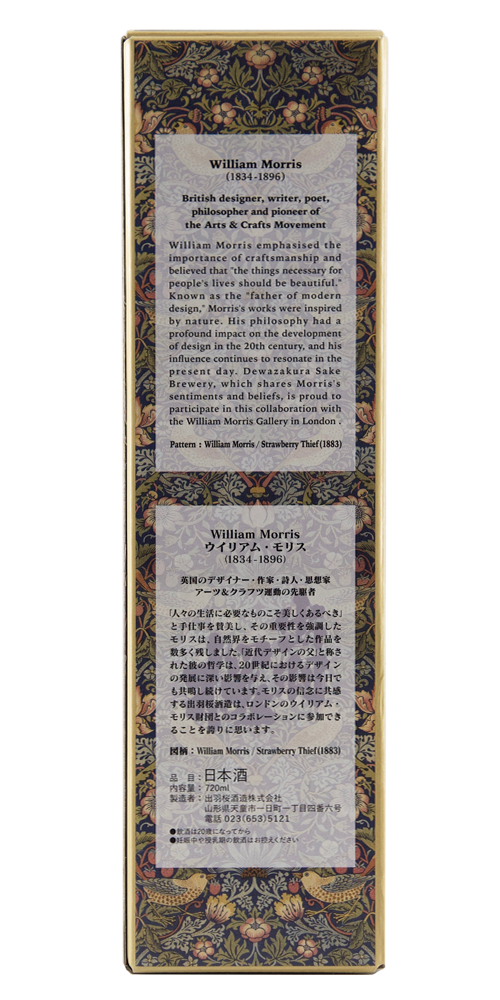 William Morris
(1834-1896)
British designer, writer, poet,
philosopher and pioneer of
the Arts & Crafts Movement
William Morris emphasised the
importance of craftsmanship and
believed that "the things necessary for
people's lives should be beautiful."
Known as the "father of modern
design," Morris's works were inspired
by nature. His philosophy had a
profound impact on the development
of design in the 20th century, and his
influence continues to resonate in the
present day. Dewazakura Sake
Brewery, which shares Morris's
sentiments and beliefs, is proud to
participate in this collaboration with
the William Morris Gallery in London .
Pattern : William Morris / Strawberry Thief (1883)
William Morris
ウイリアム・モリス
(1834-1896)
英国のデザイナー・作家・詩人・思想家
アーツ&クラフツ運動の先駆者
「人々の生活に必要なものこそ美しくあるべき」
と手仕事を賛美し、その重要性を強調した
モリスは、自然界をモチーフとした作品を
数多く残しました。「近代デザインの父」と称さ
れた彼の哲学は、20世紀におけるデザイン
の発展に深い影響を与え、その影響は今日で
も共鳴し続けています。モリスの信念に共感
する出羽桜酒造は、ロンドンのウイリアム・
モリス財団とのコラボレーションに参加でき
ることを誇りに思います。
図柄：William Morris / Strawberry Thief (1883)
品 目：日本酒
内容量：720ml
製造者：出羽桜酒造株式会社
山形県天童市一日町一丁目四番六号
電話 023(653)5121
●飲酒は20歳になってから
●妊娠中や授乳期の飲酒はお控えください